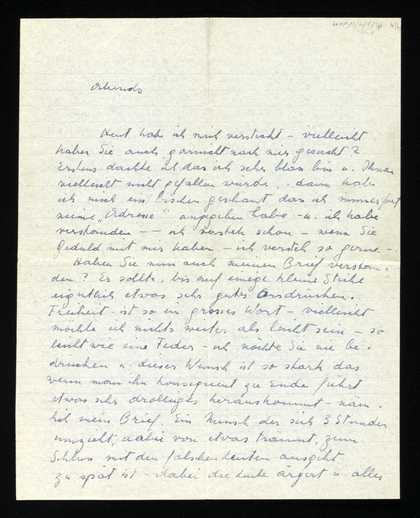 Abends
Heut hab ich mich versteckt – vielleicht
haben Sie auch garnicht nach mir gesucht?
Erstens dachte ich das ich sehr blass bin u. Ihnen
vielleicht nicht gefallen würde .. dann habe
ich mich ein bischen geschämt das ich
meine "Adresse" angegeben habe – u. ich habe
verstanden – – ich versteh schon – wenn Sie
Geduld mit mir haben – ich versteh so gerne –
Haben Sie nun auch meinen Brief verstan-
den? Er sollte, bis auf einige kleine Stiche
eigentlich etwas sehr gutes ausdrücken.
Freiheit – ist so ein grosses Wort – vielleicht
möchte ich nichts weiter als leicht sein – so
leicht wie eine Feder – ich möchte Sie nie be-
drücken u. dieser Wunsch ist so stark das
wenn man ihn konsequent zu Ende führt
etwas sehr drolliges herauskommt – näm-
lich mein Brief. Ein Mensch der sich 3 Stunden
umzieht, dabei von etwas träumt, zum
Schluss mit den falschen Leuten ausgeht
zu spät ist – dabei die Leute ärgert u. alles